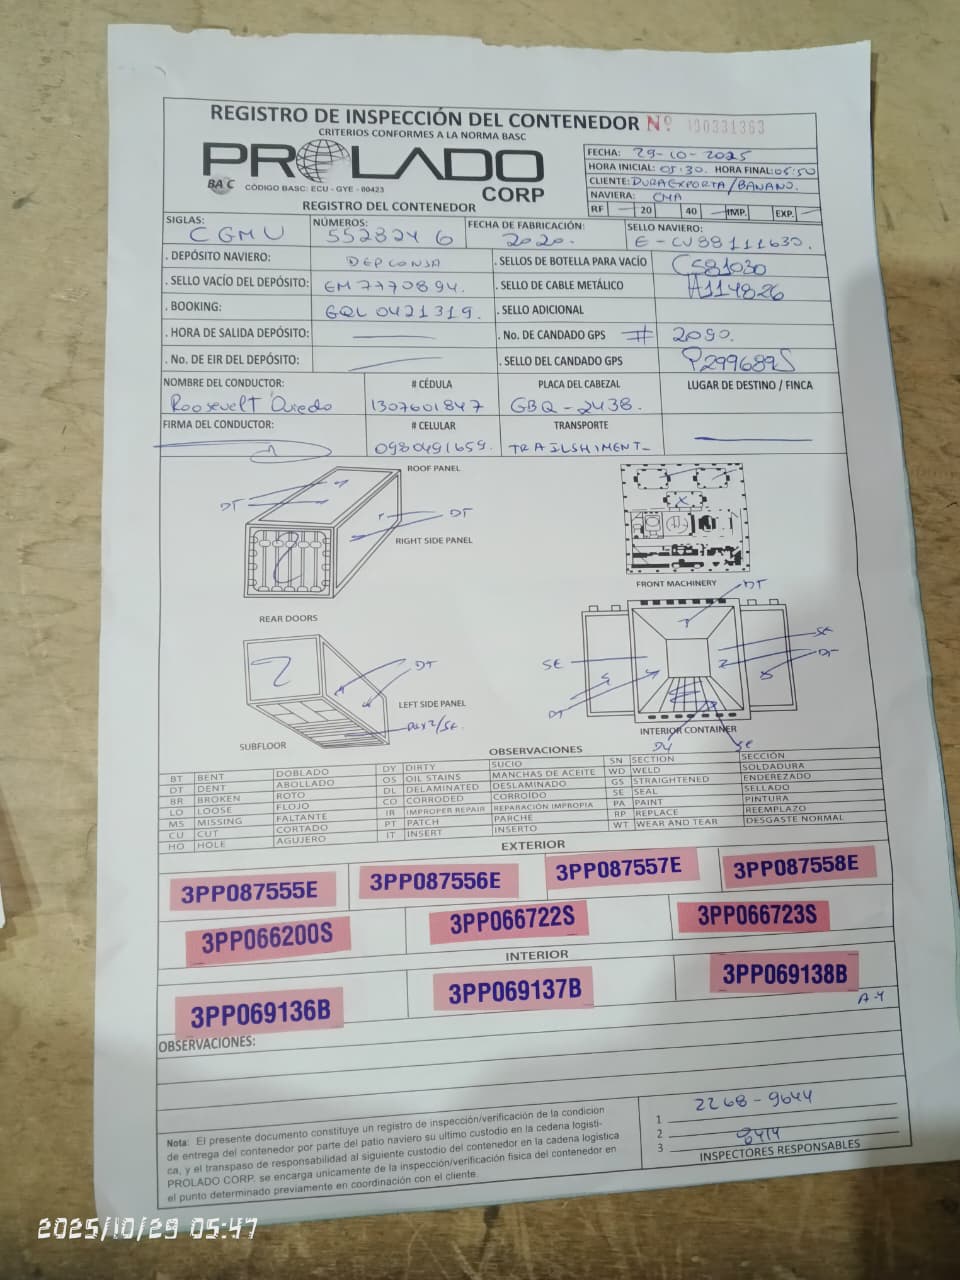 REGISTRO DE INSPECCIÓN DEL CONTENEDOR Nº 000331363
CRITERIOS CONFORMES A LA NORMA BASC
PROLADO CORP
BASC CÓDIGO BASC: ECU - GYE - 00423
REGISTRO DEL CONTENEDOR
FECHA: 29-10-2025
HORA INICIAL: 05:30. HORA FINAL: 05:50
CLIENTE: DURAEXPORTA/BANANO.
NAVIERA: CMA
RF 20 40 IMP. EXP.
SIGLAS: CGMU NÚMEROS: 5523246 FECHA DE FABRICACIÓN: 2020. SELLO NAVIERO: E-CU88111630.
. DEPÓSITO NAVIERO: DEPCONSA . SELLOS DE BOTELLA PARA VACÍO C581030
. SELLO VACÍO DEL DEPÓSITO: EM7770894. . SELLO DE CABLE METÁLICO A114826
. BOOKING: GQL0421319. . SELLO ADICIONAL
. HORA DE SALIDA DEPÓSITO: . No. DE CANDADO GPS # 2090.
. No. DE EIR DEL DEPÓSITO: . SELLO DEL CANDADO GPS P299689S
NOMBRE DEL CONDUCTOR: # CÉDULA PLACA DEL CABEZAL LUGAR DE DESTINO / FINCA
Roosevelt Oviedo 1307601847 GBQ-2438.
FIRMA DEL CONDUCTOR: # CELULAR TRANSPORTE
0980491659. TRAILSHIMENT_
ROOF PANEL
DT
DT
RIGHT SIDE PANEL
REAR DOORS
FRONT MACHINERY
DT
SE
SE
DT
DT
DT
LEFT SIDE PANEL
SUBFLOOR
INTERIOR CONTAINER
SE
OBSERVACIONES
BT BENT DOBLADO DY DIRTY SUCIO SN SECTION SECCIÓN
DT DENT ABOLLADO OS OIL STAINS MANCHAS DE ACEITE WD WELD SOLDADURA
BR BROKEN ROTO DL DELAMINATED DESLAMINADO GS STRAIGHTENED ENDEREZADO
LO LOOSE FLOJO CO CORRODED CORROÍDO SE SEAL SELLADO
MS MISSING FALTANTE IR IMPROPER REPAIR REPARACIÓN IMPROPIA PA PAINT PINTURA
CU CUT CORTADO PT PATCH PARCHE RP REPLACE REEMPLAZO
HO HOLE AGUJERO IT INSERT INSERTO WT WEAR AND TEAR DESGASTE NORMAL
EXTERIOR
3PP087555E 3PP087556E 3PP087557E 3PP087558E
3PP066200S 3PP066722S 3PP066723S
INTERIOR
3PP069136B 3PP069137B 3PP069138B
A-4
OBSERVACIONES:
Nota: El presente documento constituye un registro de inspección/verificación de la condición
de entrega del contenedor por parte del patio naviero su ultimo custodio en la cedena logisti-
ca, y el transpaso de responsabilidad al siguiente custodio del contenedor en la cadena logística
PROLADO CORP. se encarga unicamente de la inspección/verificación fisica del contenedor en
el punto determinado previamente en coordinación con el cliente.
1 2268-9644
2 8414
3
INSPECTORES RESPONSABLES
2025/10/29 05:47